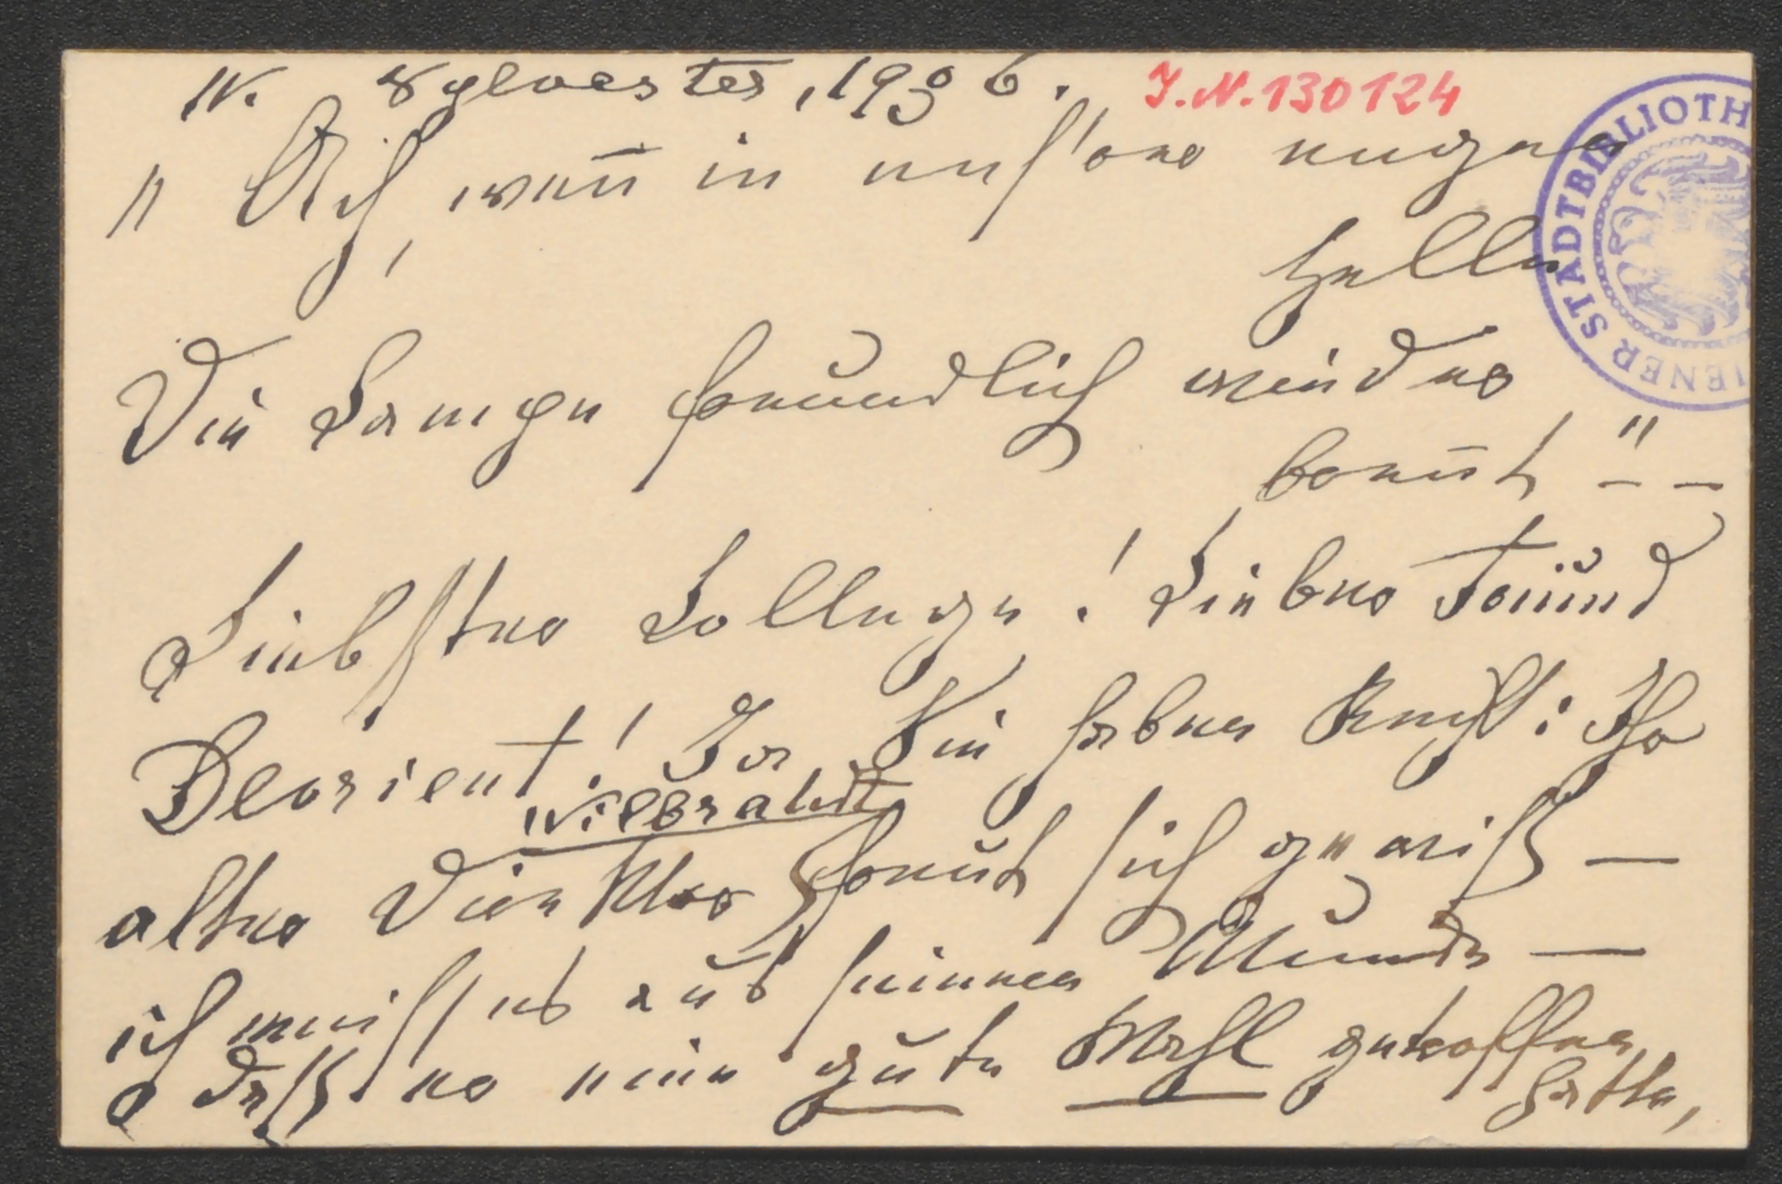 W. Sylvester, 1936.
J.N. 130124
WIENER STADTBIBLIOTH
„Ach, wenn in uns'rer engen
Zelle
Die Lampe freundlich wieder
brennt" – –
Liebster Kollege! Lieber Freund
Devrient! Ja, Sie haben Recht: Ihr
Wilbrandt
alter Direktor freut sich gewiß —
ich weiss es aus seinem Munde —
daß er eine gute Wahl getroffen
hatte,